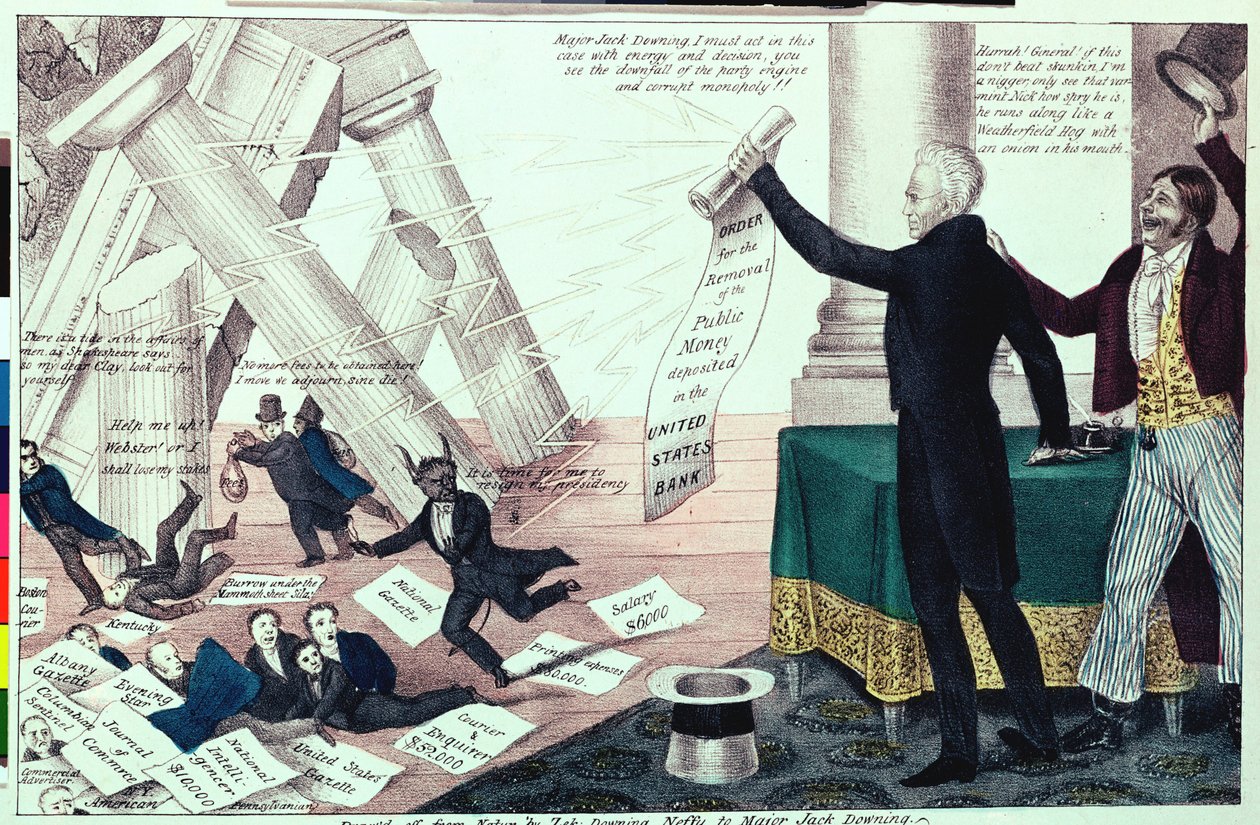 Major Jack Downing, I must act in this
case with energy and decision, you
see the downfall of the party engine
and corrupt monopoly!!
Hurrah! Gineral! if this
don't beat skunkin, I'm
a nigger, only see that var-
mint Nick how spry he is,
he runs along like a
Weatherfield Hog with
an onion in his mouth.
ORDER
for the
Removal
of the
Public
Money
deposited
in the
UNITED
STATES
BANK
There is a tide in the affairs of
men, as Shakespeare says
so my dear Clay, look out for
yourself
No more fees to be obtained here!
I move we adjourn, sine die!
Help me up!
Webster! or I
shall lose my stakes
Fees
It is time for me to
resign my presidency
Boston
Cou-
rier
Burrow under the
Mammoth sheet Sila!
Kentucky
National
Gazette
Salary
$6000
Printing expenses
$80.000.
Albany
Gazette
Evening
Star
Columbian
Sentinel
Journal
of
Commrce
National
Intelli-
gencer
$10,000
United States
Gazette
Courier
&
Enquirer
$52,000
Commercial
Advertiser
N.Y.
American
Pennsylvanian
Draw'd off from Natur' by Zek: Downing, Neffu to Major Jack Downing.